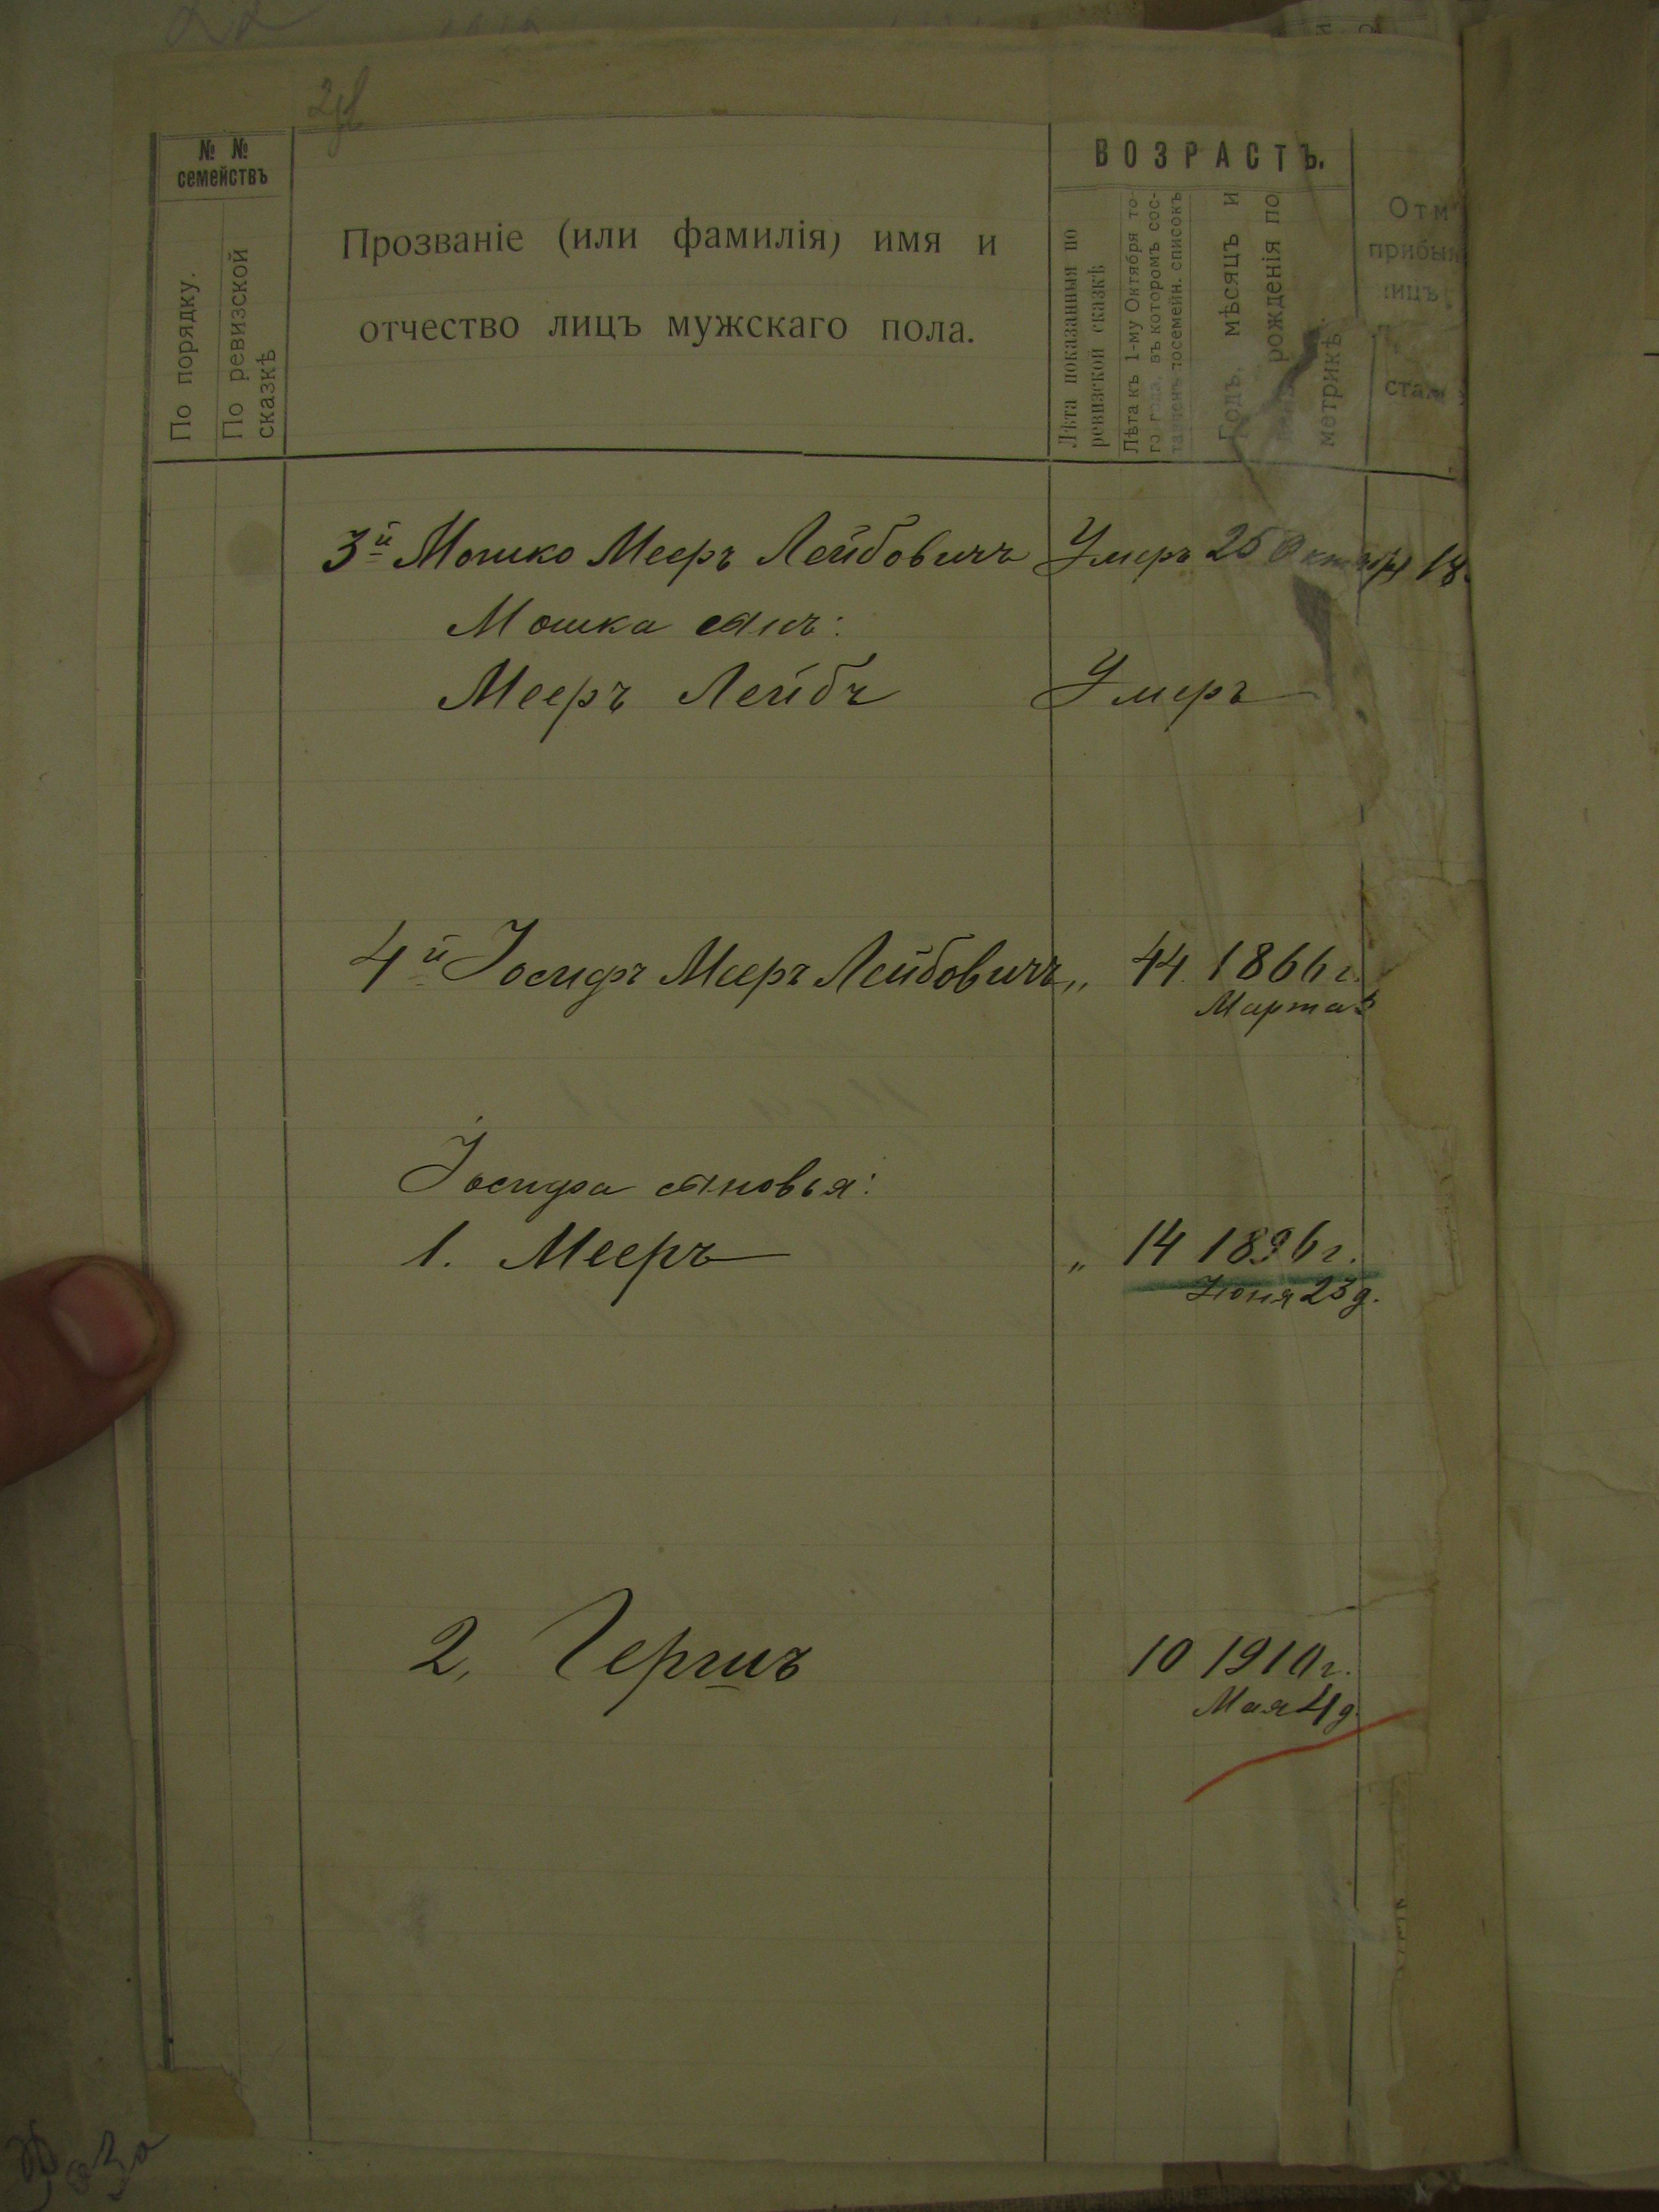 № №
семействъ
По порядку.
По ревизской
сказкѣ
Прозваніе (или фамилія) имя и
отчество лицъ мужскаго пола.
ВОЗРАСТЪ.
Лѣта показанныя по
ревизской сказкѣ
Лѣта къ 1-му Октября то-
го года, въ которомъ сос-
тавленъ посемейн. списокъ
Годъ, мѣсяцъ и
рожденія по
метрикѣ.
Отм
прибы
лицъ
ста
3й Мошко Мееръ Лейбовичъ Умеръ 25 Октября 18
Мошка сынъ:
Мееръ Лейбъ Умеръ
4й Іосифъ Мееръ Лейбовичъ „ 44 1866 г.
Марта
Іосифа сыновья:
1. Мееръ „ 14 1896 г.
Іюня 23 д.
2, Гершъ 10 1910 г.
Мая 4 д.